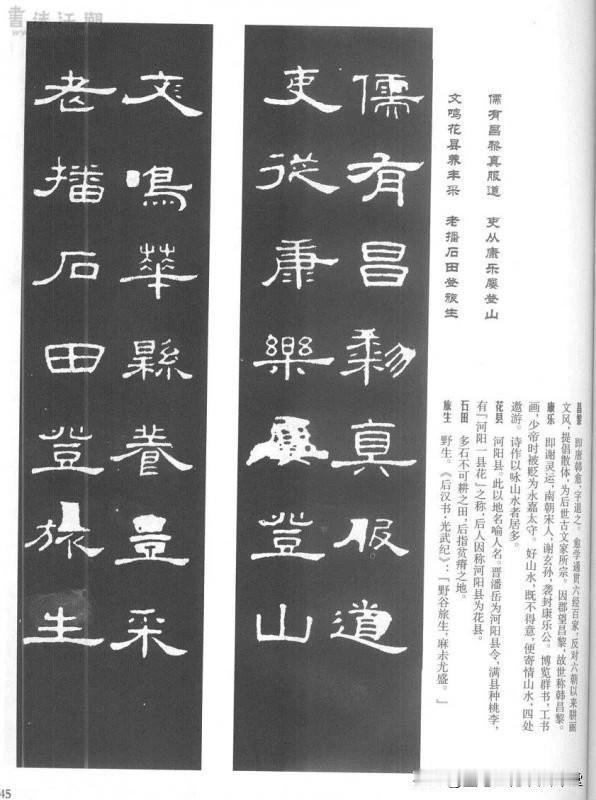 儒有昌黎真服道 吏从康乐屡登山
文鸣花县养丰采 老播石田登旅生
昌黎 即唐韩愈,字退之。愈学通贯六经百家,反对六朝以来骈画
文风,提倡散体,为后世古文家所宗。因郡望昌黎,故世称韩昌黎。
康乐 即谢灵运,南朝宋人,谢玄孙,袭封康乐公。博览群书,工书
画,少帝时被贬为永嘉太守。好山水,既不得意,便寄情山水,四处
遨游。诗作以咏山水者居多。
花县 河阳县。此以地名喻人名。晋潘岳为河阳县令,满县种桃李,
有「河阳一县花」之称,后人因称河阳县为花县。
石田 多石不可耕之田,后指贫瘠之地。
旅生 野生。《后汉书·光武纪》:「野谷旅生,麻尗尤盛。」
儒有昌黎真服道
吏從康樂屢登山
文鳴華縣養豊采
老播石田登旅生
45
書法江湖